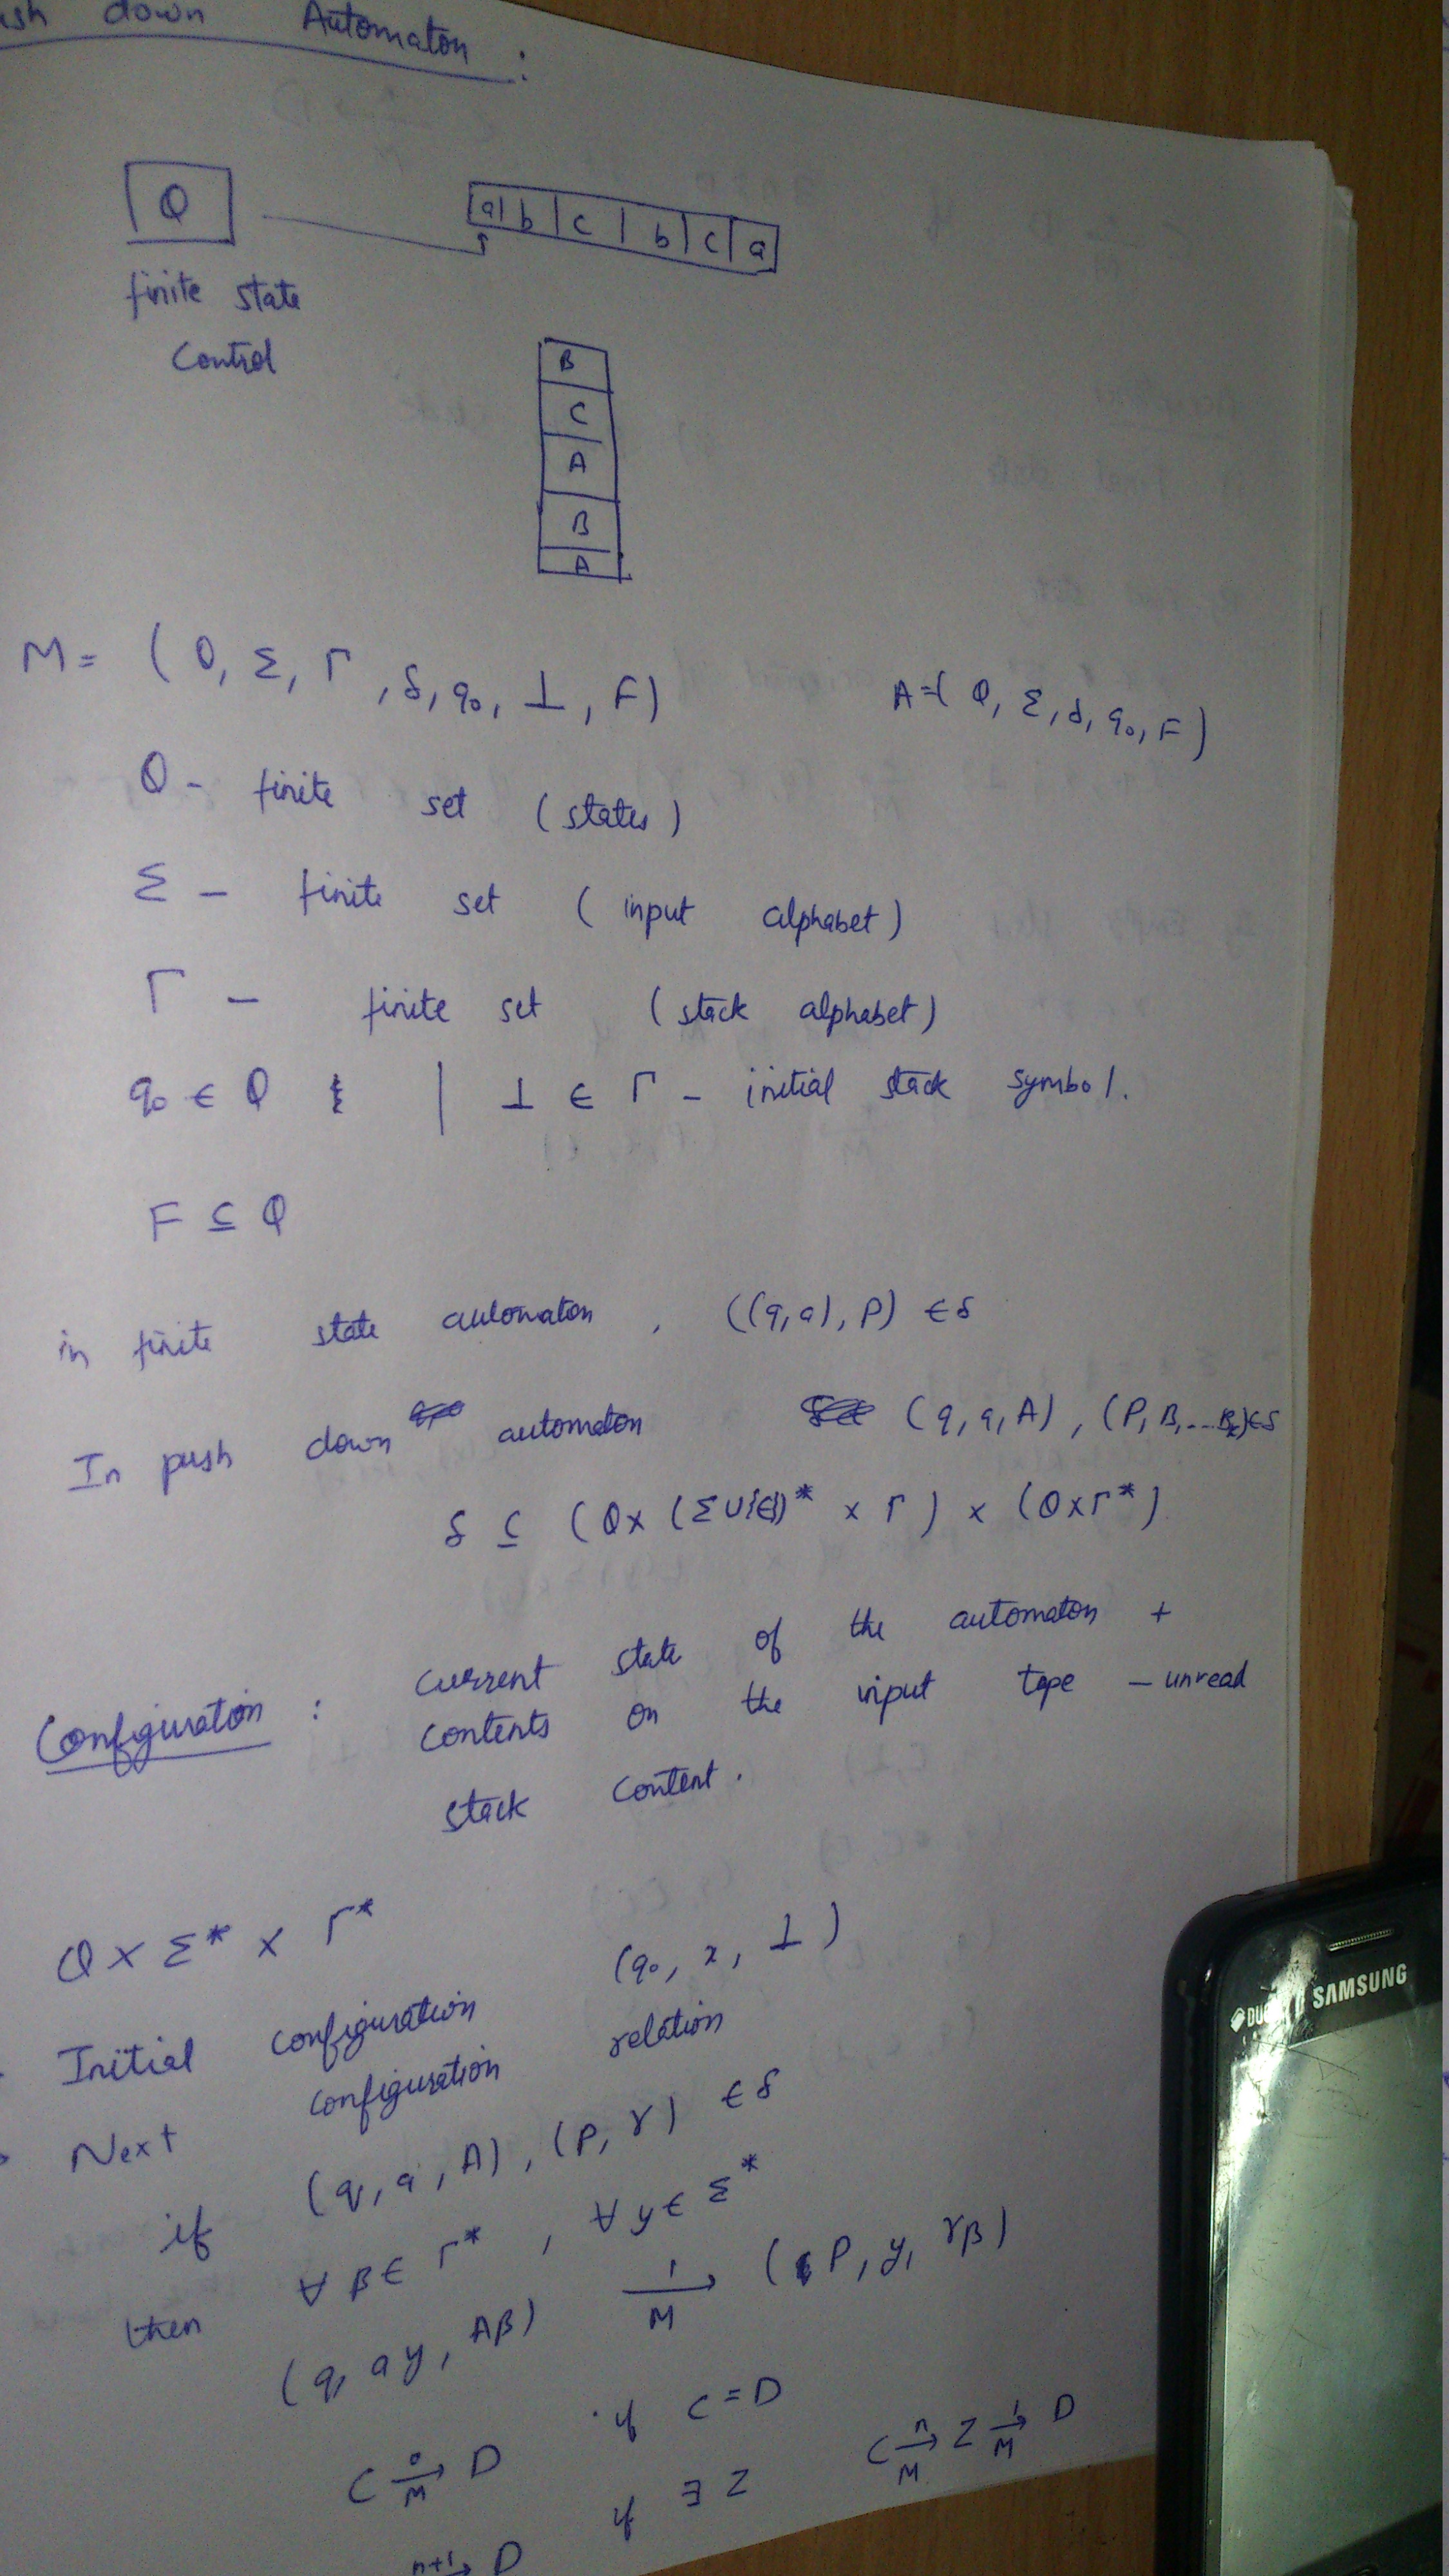 down Automaton :
Q
a b c b c a
finite state
control
B
C
A
B
A
M = (Q, Σ, Γ, δ, q₀, ⊥, F)
A=(Q, Σ, δ, q₀, F)
Q - finite set (states)
Σ - finite set (input alphabet)
Γ - finite set (stack alphabet)
q₀ ∈ Q | ⊥ ∈ Γ - initial stack symbol.
F ⊆ Q
in finite state automaton , ((q,a),P) ∈ δ
In push down automaton (q,a,A), (P,B,...Bₖ)∈δ
δ ⊆ (Q x (Σ∪{ε})* x Γ) x (Q x Γ*)
Configuration : current state of the automaton +
contents on the input tape - unread
stack content.
Q x Σ* x Γ*
Initial configuration (q₀, x, ⊥)
Next configuration relation
if (q, a, A), (P, γ) ∈ δ
∀ β ∈ Γ*, ∀ y ∈ Σ*
then (q, ay, Aβ) 1→M (P, y, γβ)
C 0→M D if C = D
n+1→ D if ∃ Z C n→M Z 1→M D
DUOS SAMSUNG